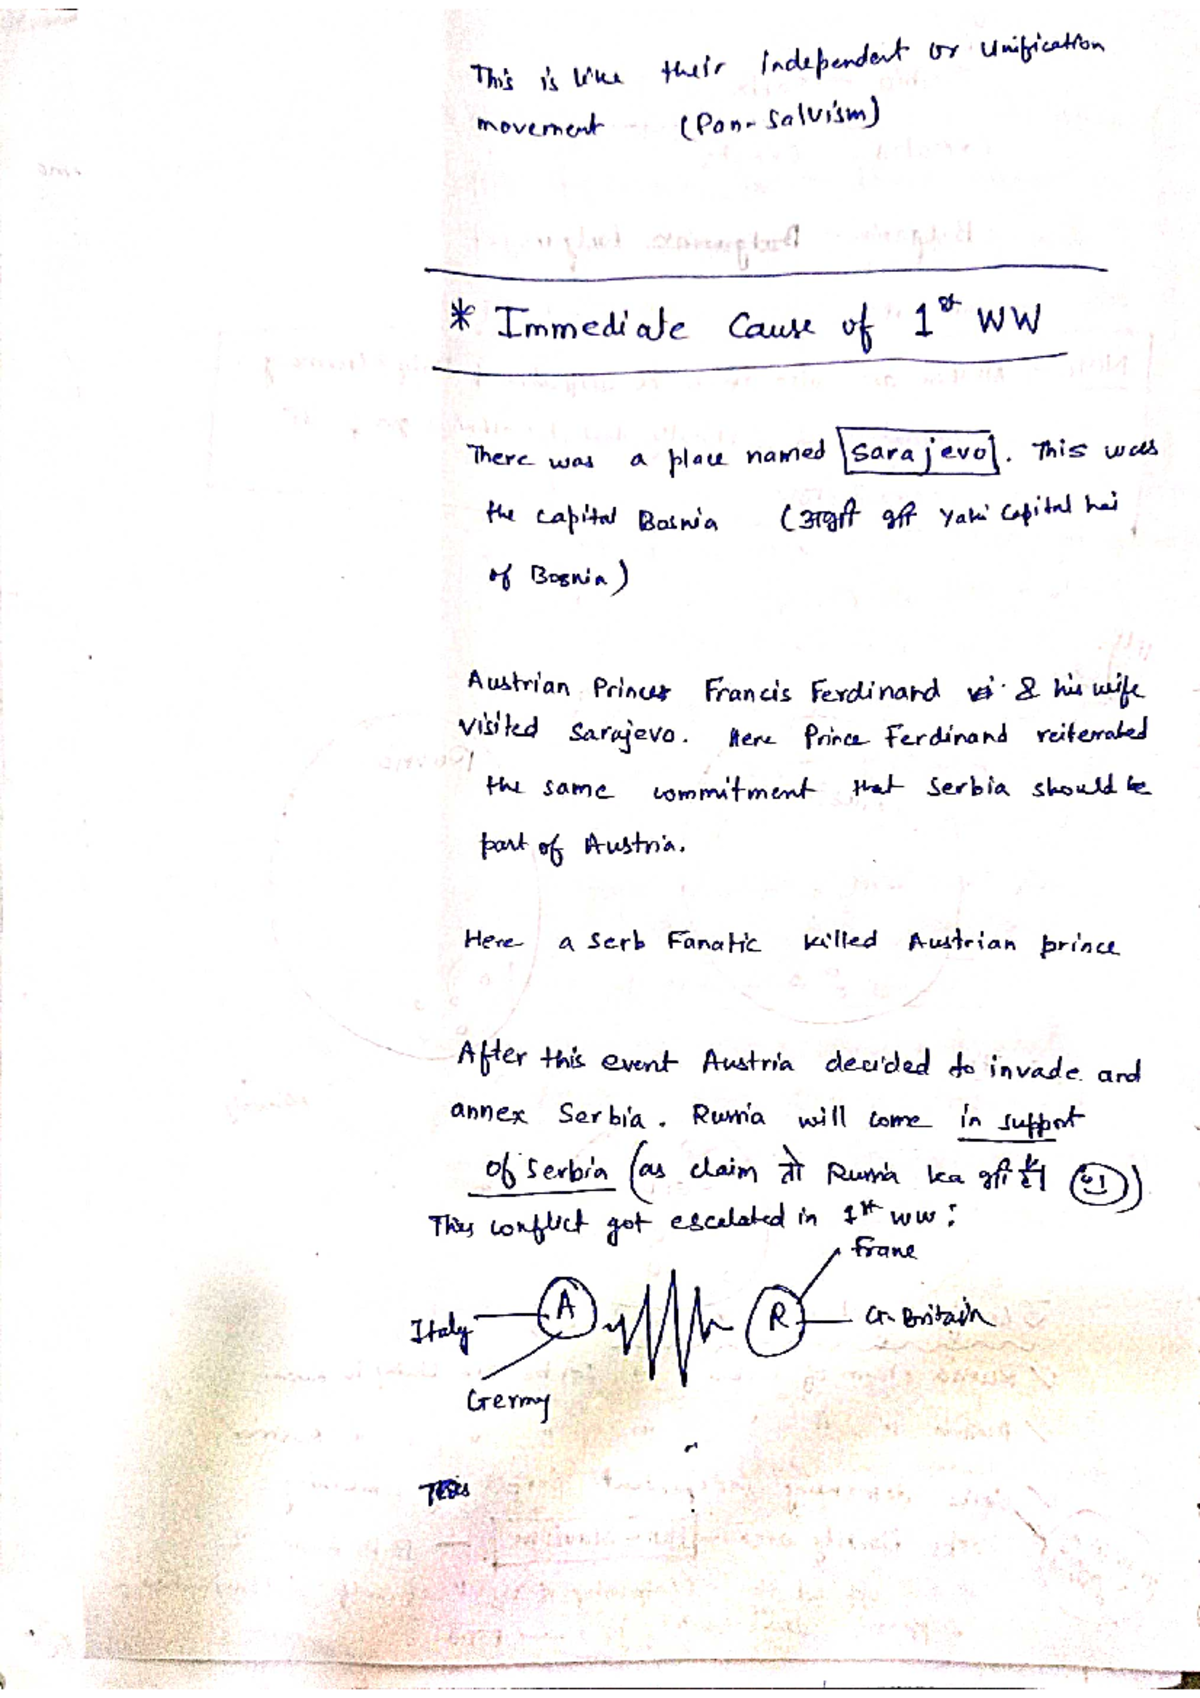 This is like their independent or Unification
movement (Pan-Salvism)
* Immediate Cause of 1st WW
There was a place named Sarajevo. This was
the capital Bosnia (अभी भी Yahi Capital hai
of Bosnia)
Austrian Prince Francis Ferdinand & his wife
visited Sarajevo. Here Prince Ferdinand reiterrated
the same commitment that Serbia should be
part of Austria.
Here a Serb Fanatic killed Austrian prince
After this event Austria decided to invade and
annex Serbia. Russia will come in support
of Serbia (as claim तो Russia ka भी है)
This conflict got escalated in 1st WW:
France
Italy A R Gr. Britain
Germy
This